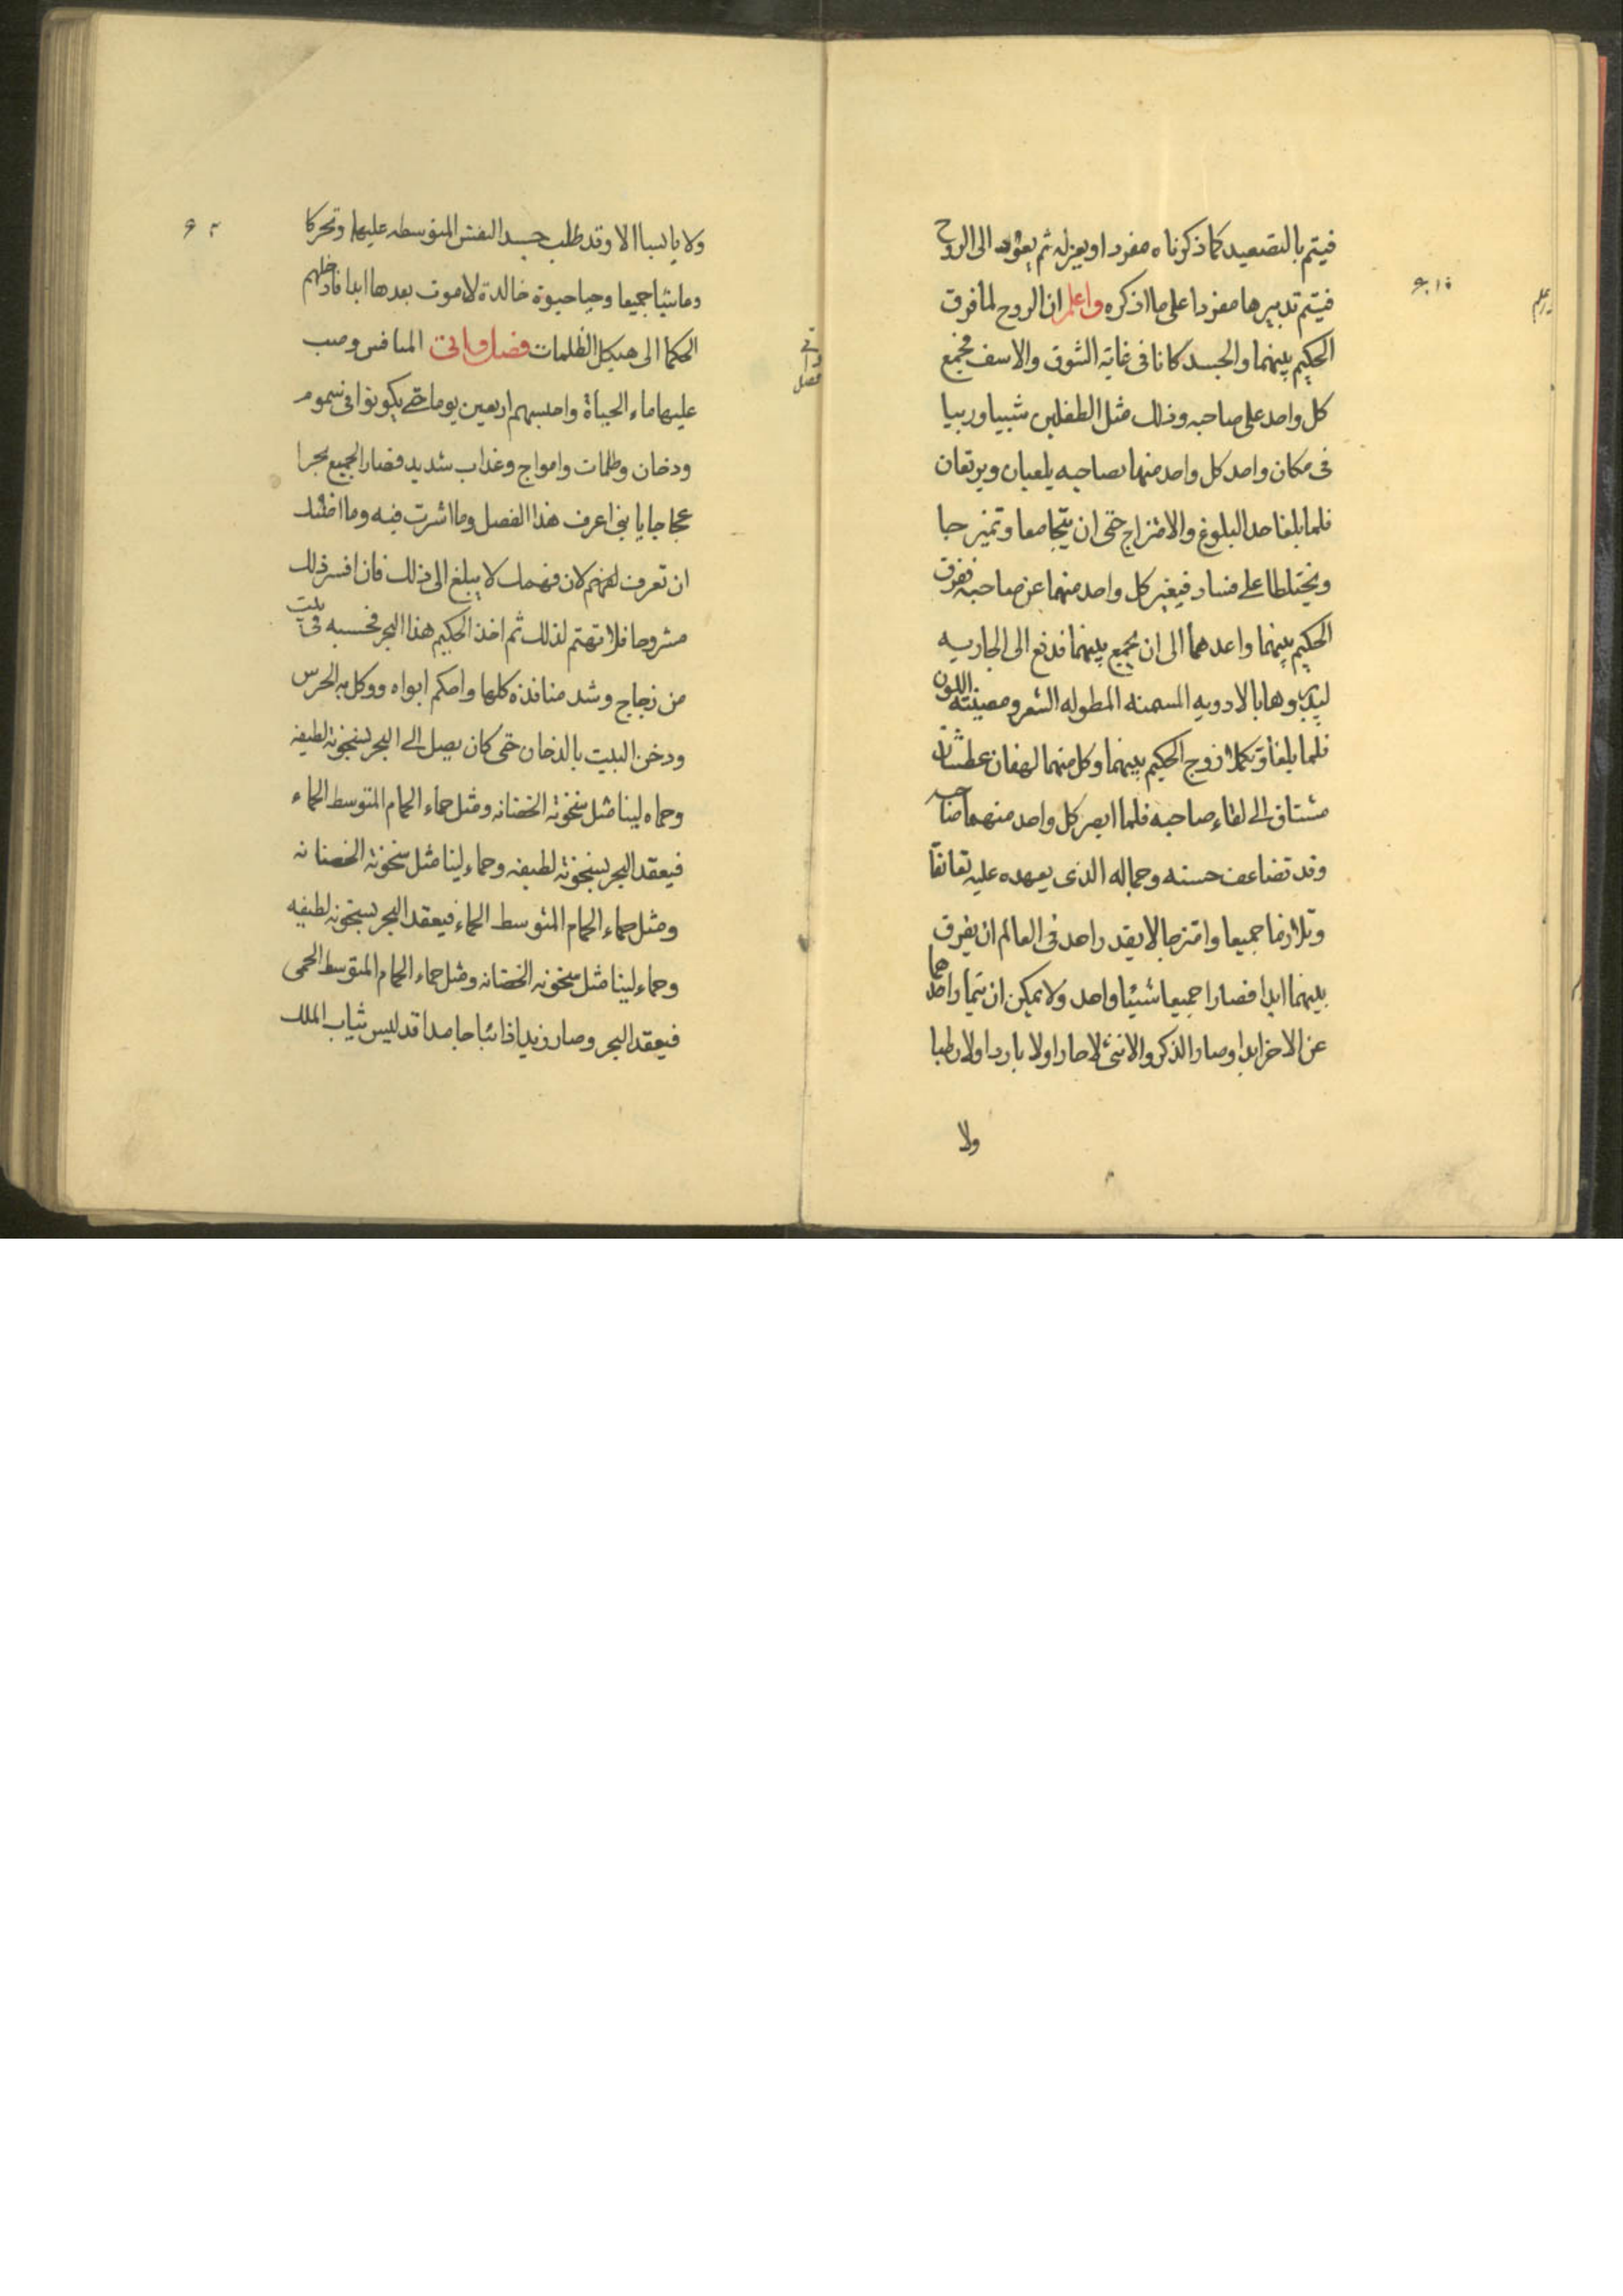 فيتم بالتصعيد كما ذكرناه مفردا ويعزله ثم يعود الى الروح
فيتم تدبيرها مفردا على ما اذكره واعلم ان الروح لما فرق
الحكيم بينهما والجسد كانا فى غاية الشوق والاسف فجمع
كل واحد على صاحبه وذلك مثل الطفلين شبيا وربيا
فى مكان واحد كل واحد منهما بصاحبه يلعبان ويرتعان
فلما بلغا حد البلوغ والامتزاج حتى ان يتجامعا وتميزجا
ويختلطا على فساد فيغير كل واحد منهما عن صاحبه ففرق
الحكيم بينهما واعدهما الى ان يجمع بينهما فدفع الى الجاريه
ليدبروها بالادويه المسمنه المطوله الشعر ومصينته اللون
فلما بلغا وتكملا زوج الحكيم بينهما وكل منهما لهفان عطشان
مشتاق الى لقاء صاحبه فلما ابصر كل واحد منهما صاحبه
وقد تضاعف حسنه وجماله الذى يعهده عليه تعانقا
وتلازما جميعا وامتزجا لا يقدر احد فى العالم ان يفرق
بينهما ابدا فصارا جميعا شيئا واحد ولا يمكن ان يتمازا احدهما
عن الاخر ابدا وصار الذكر والانثى لا حارا ولا باردا ولا رطبا
ولا
ولا يابسا الا وقد طلب جسد النفس المتوسطه عليهما وتحركا
وماشيا جميعا وحيا حيوة خالدة لا موت بعدها ابدا فادخلهم
الحكما الى هيكل الظلمات فصل وانى المنافس وصب
عليها ماء الحياة واحبسهم اربعين يوما حتى يكونوا فى سموم
ودخان وظلمات وامواج وعذاب شديد فصار الجميع بحرا
عجاجا يا بنى اعرف هذا الفصل وما اشرت فيه وما اقشد
ان تعرف لفهم لان فهمك لا يبلغ الى ذلك فان افسر ذلك
مشروحا فلا تهتم لذلك ثم اخذ الحكيم هذا البحر فحسبه فى بيت
من زجاج وشد منافذه كلها واحكم ابوابه ووكل به الحرس
ودخن البيت بالدخان حتى كان يصل الى البحر بسخونة لطيفه
وحماه لينا مثل سخونة الخضانه ومثل حماء الحمام المتوسط الحماء
فيعقد البحر بسخونة لطيفه وحماء لينا مثل سخونة الخضانه
ومثل حماء الحمام المتوسط الحماء فيعقد البحر بسخونه لطيفه
وحماء لينا مثل سخونه الخضانه ومثل حماء الحمام المتوسط الحمى
فيعقد البحر وصار زبدا ذائبا جامدا قد لبس ثياب الملك